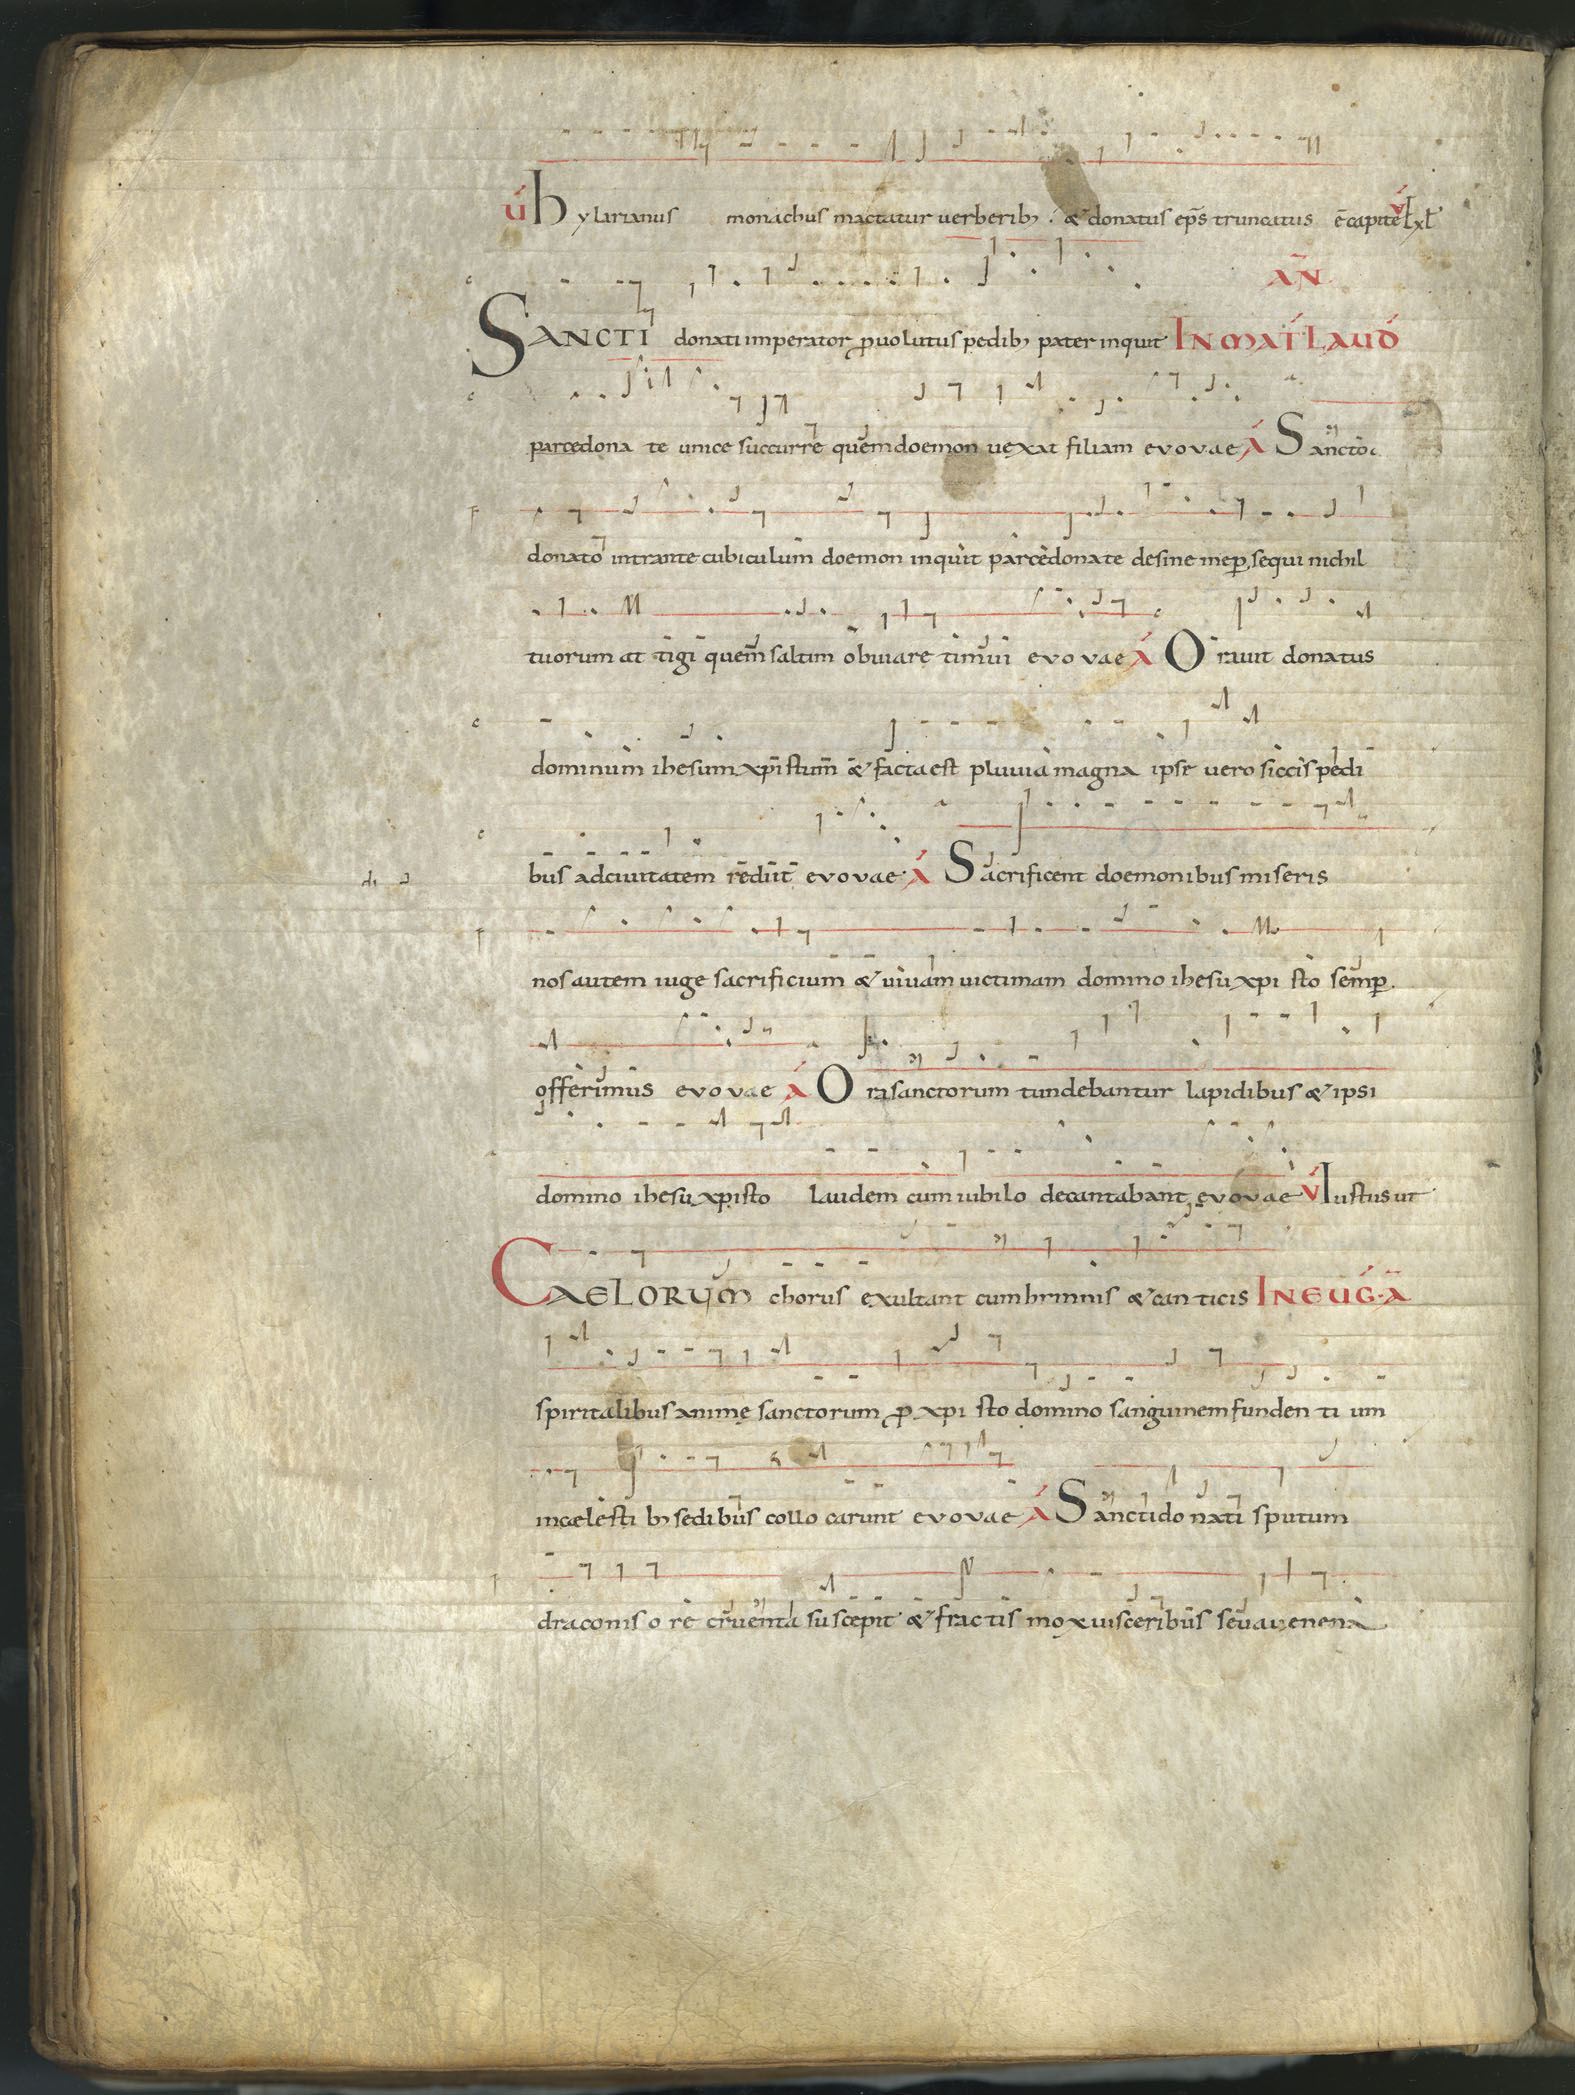 v́ hylarianus monachus mactatur uerberib; . & donatus ep̄s truncatus ē capite v́
AN̄
SANCTI donati imperator ꝓuolutus pedib; pater inquit IN MAT̄ LAUD́
parcedona te unice succurre quem doemon uexat filiam evovae Á Sancto
donato intrante cubiculum doemon inquit parcedonate desine me ꝑsequi nichil
tuorum at tigi quem saltim obuiare timui evovae Á Orauit donatus
dominum ihesum xpistum & facta est pluuia magna ipse uero siccis pedi
bus ad ciuitatem rediit evovae Á Sacrificent doemonibus miseris
nos autem iuge sacrificium & uiuam uictimam domino ihesu xpi sto semꝑ.
offerimus evovae Á Ora sanctorum tundebantur lapidibus & ipsi
domino ihesu xpisto laudem cum iubilo decantabant evovae v́ Iustus ut
CAELORUM chorus exultant cum hymnis & can ticis IN EUǴ·Ā
spiritalibus animę sanctorum ꝓ xpi sto domino sanguinem funden ti um
in caelesti b; sedibus collo carunt evovae Á Sancti do nati sputum
draconis o re cruenta suscepit & fractis mox uisceribus seua uenena